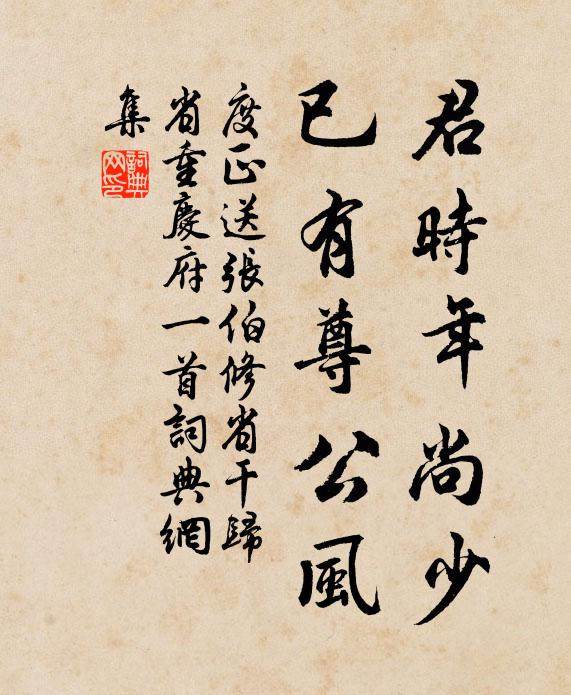 君時年尚少
已有尊公風
度正送張伯修省干歸
省重慶府一首詞典網
集
詞典網印